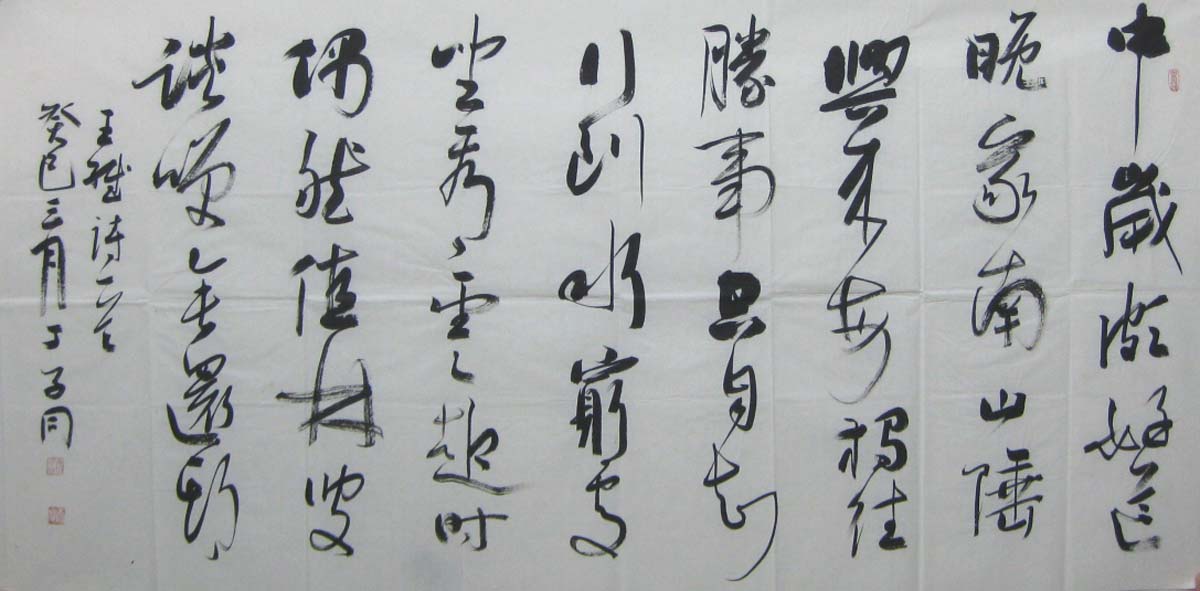 中歲頗好道
晚家南山陲
興來每獨往
勝事空自知
行到水窮處
坐看雲起时
偶然值林叟
談咲無還期
王維詩一首
癸巳三月丁子同